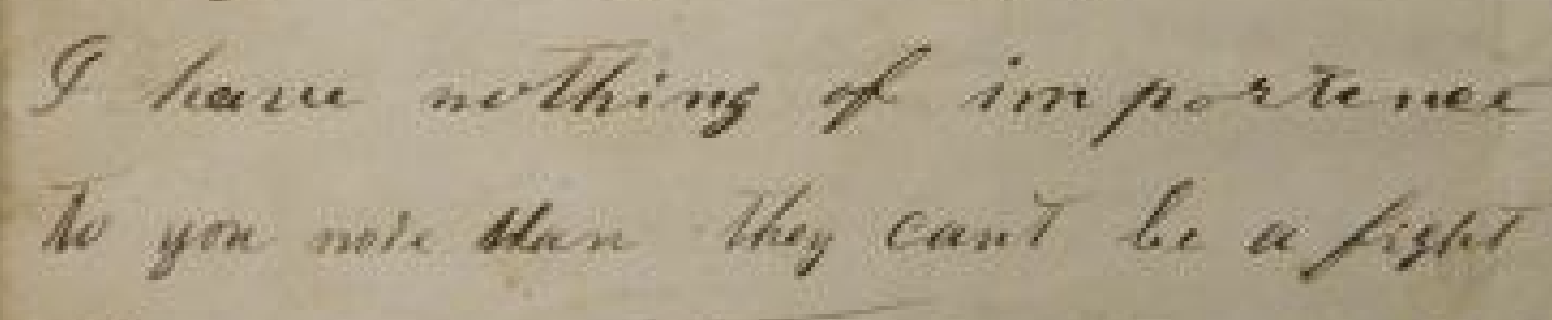 I have nothing of importence
to you more than they can't be a fight